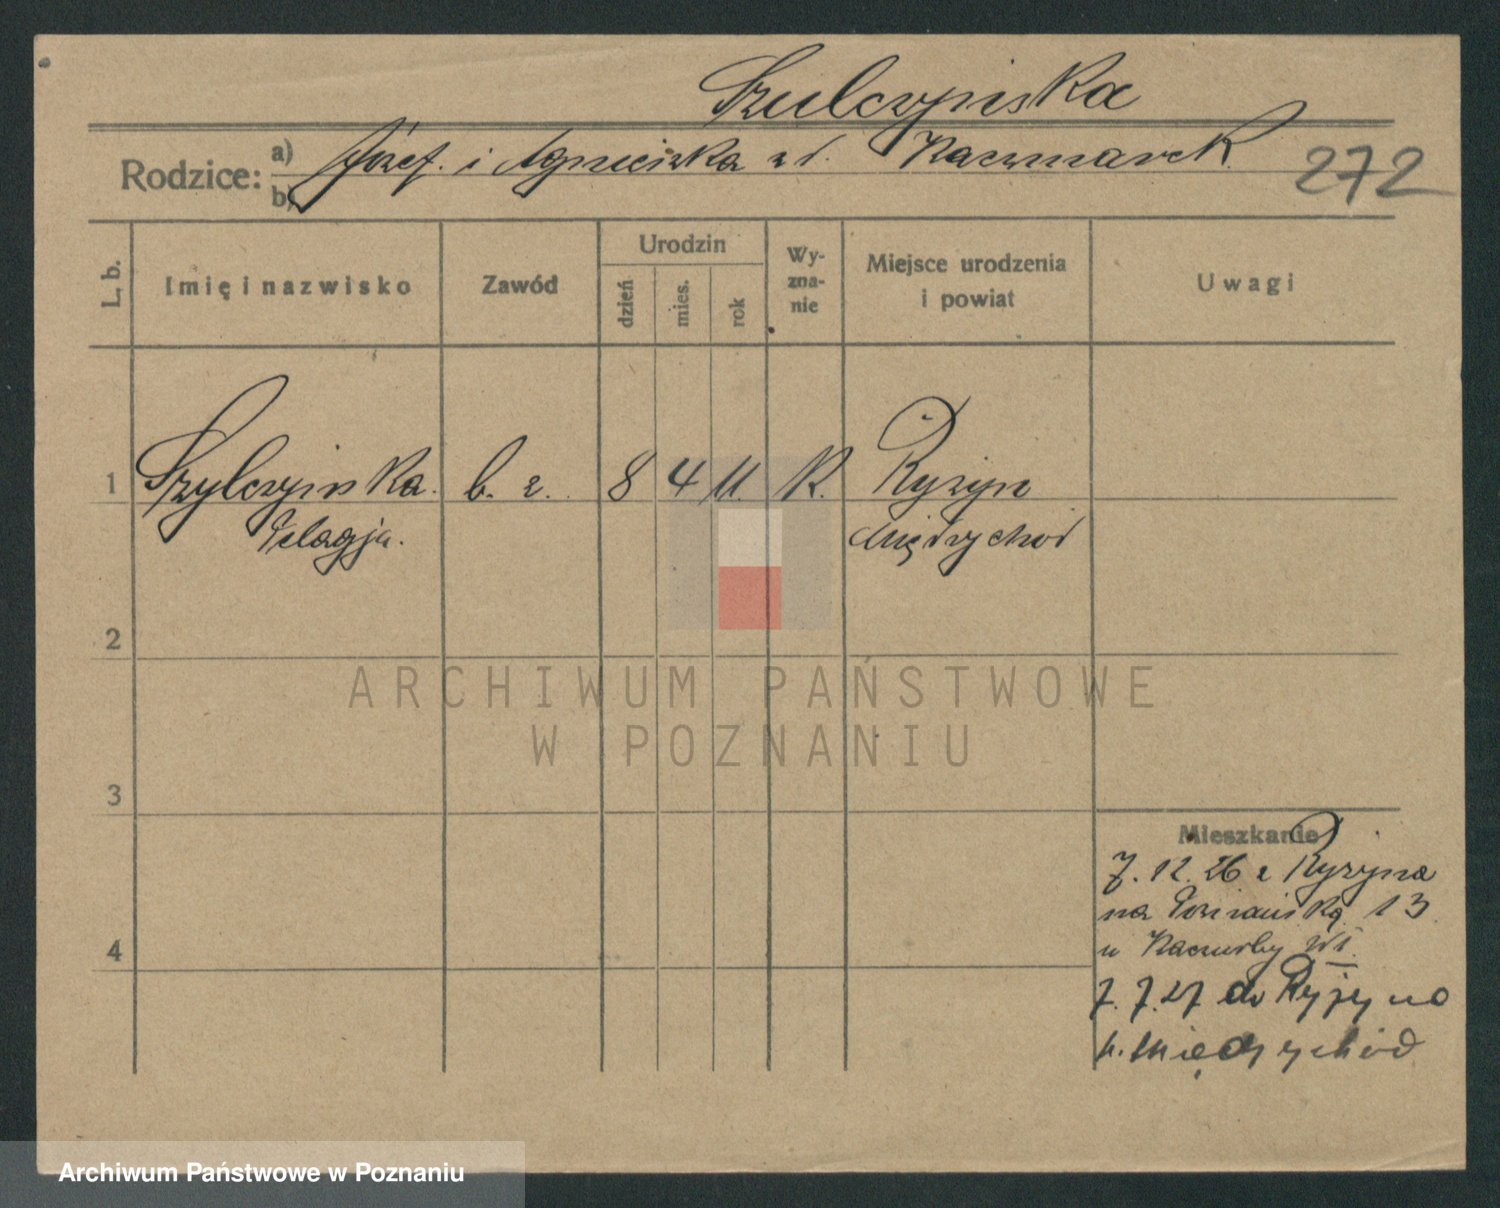 Szulczyńska
Rodzice: a) Józef. i Agnieszka z d. Kaczmarek
b)
272
L. b.
Imię i nazwisko
Zawód
Urodzin
dzień
mies.
rok
Wy-
zna-
nie
Miejsce urodzenia
i powiat
Uwagi
1 Szylczyińska. b. z. 8 4 11. K. Ryżyn
Pelagja. Międzychod
2
3
4
Mieszkanie
7. 12. 26 z Ryżyna
na Poznańską 13
u
7. 7. 27 do Ryżyno
p. Międzychód
ARCHIWUM PAŃSTWOWE
W POZNANIU
Archiwum Państwowe w Poznaniu